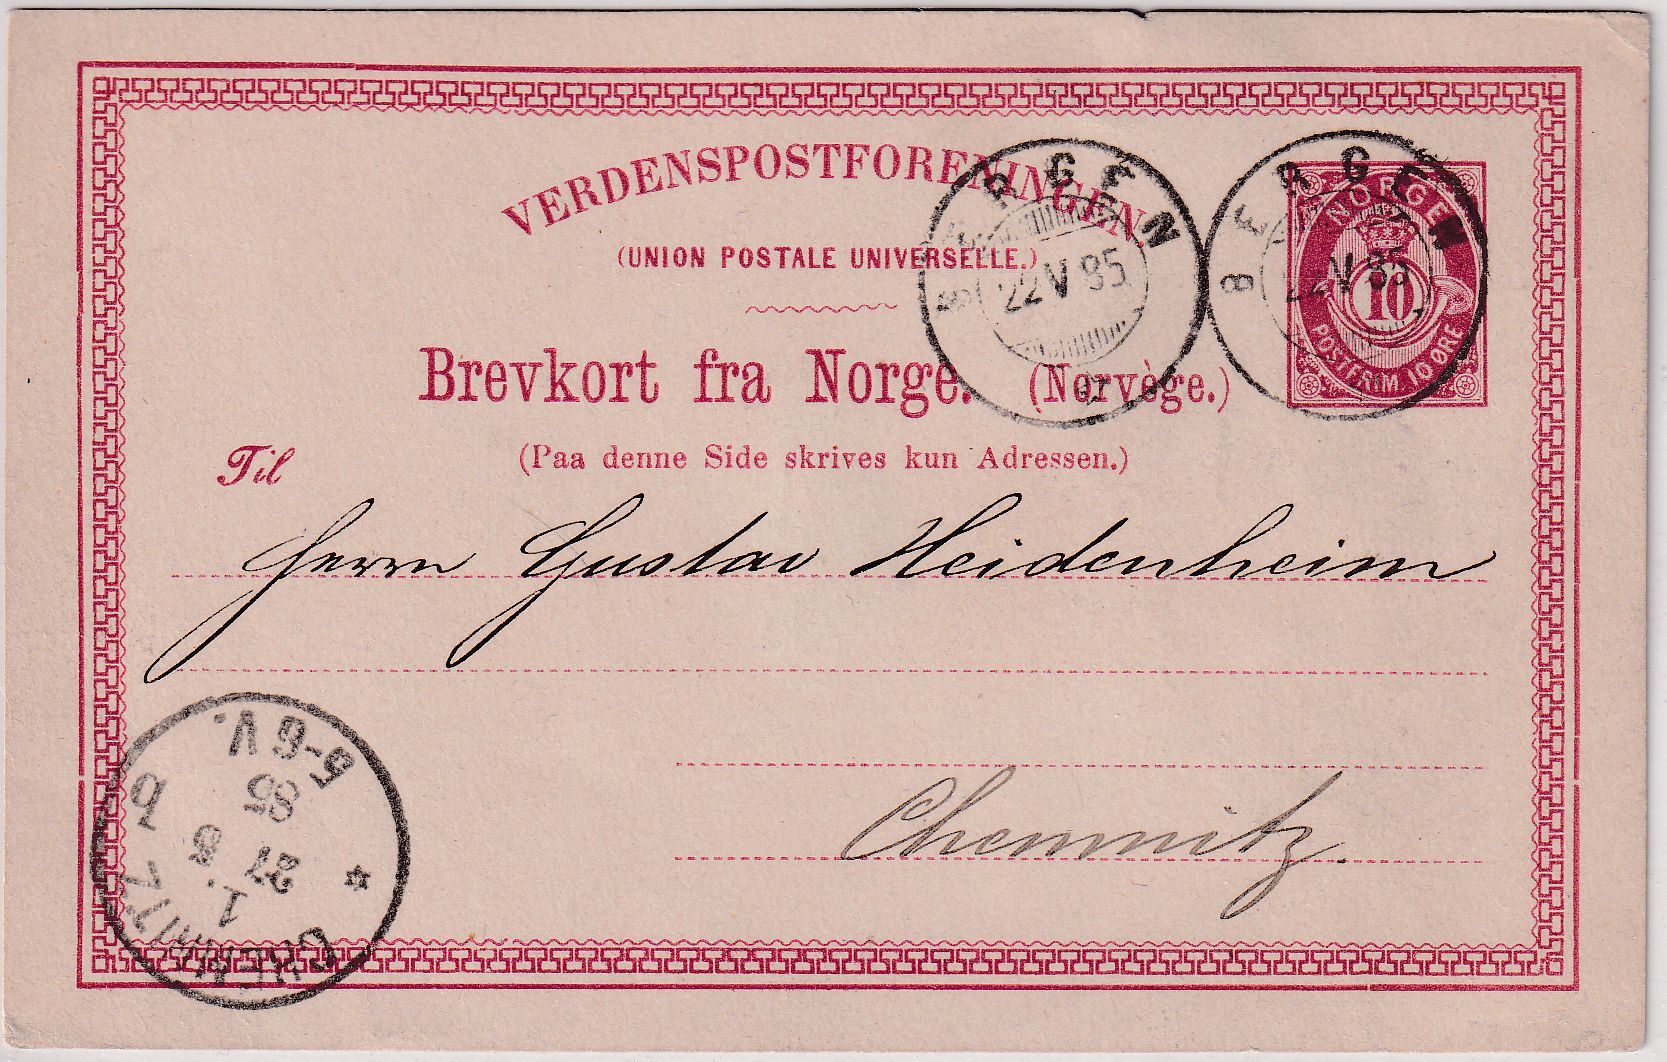 VERDENSPOSTFORENINGEN.
(UNION POSTALE UNIVERSELLE.)
BERGEN
22 V 85
BERGEN
22 V 85
NORGE
10
POSTFRIM 10 ØRE
Brevkort fra Norge. (Norvège.)
(Paa denne Side skrives kun Adressen.)
Til
Herrn Gustav Heidenheim
Chemnitz.
CHEMNITZ
1.
27
85
5-6 V.
b